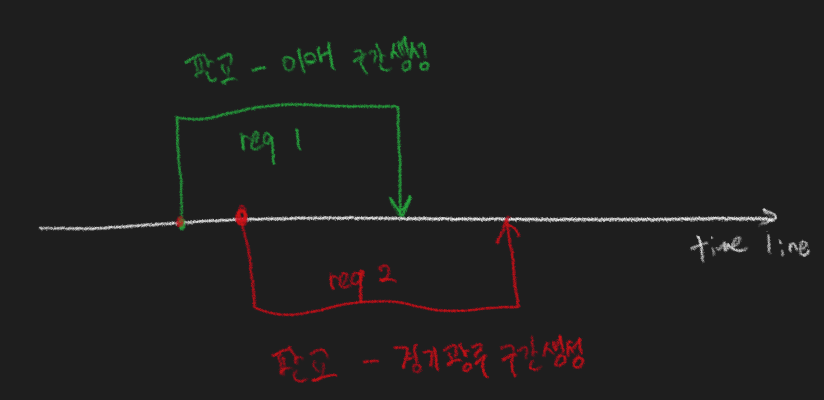 판교 - 이매 구간생성
req 1
time line
req 2
판교 - 경기광주 구간생성